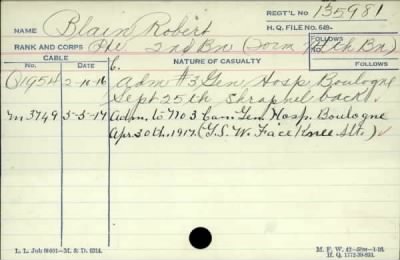 REGT'L No 135981
NAME Blain Robert
H. Q. FILE NO. 649-
RANK AND CORPS Pte 2nd Bn (Form 74th Bn)
FOLLOWS
FOLLOWS
CABLE
NATURE OF CASUALTY
NO. DATE
Q1954 2-10-16 Adm #3 Gen Hosp Boulogne
Sept 25th shrapnel back.
M3749 5-5-17 Adm. to No 3 Can. Gen. Hosp. Boulogne
Apr. 30th. 1917. (G.S.W. Face Knee. Slt.)
L. L. Job
M. & D. 6314.
M. F. W. 42
H. Q. 1772-39-893.